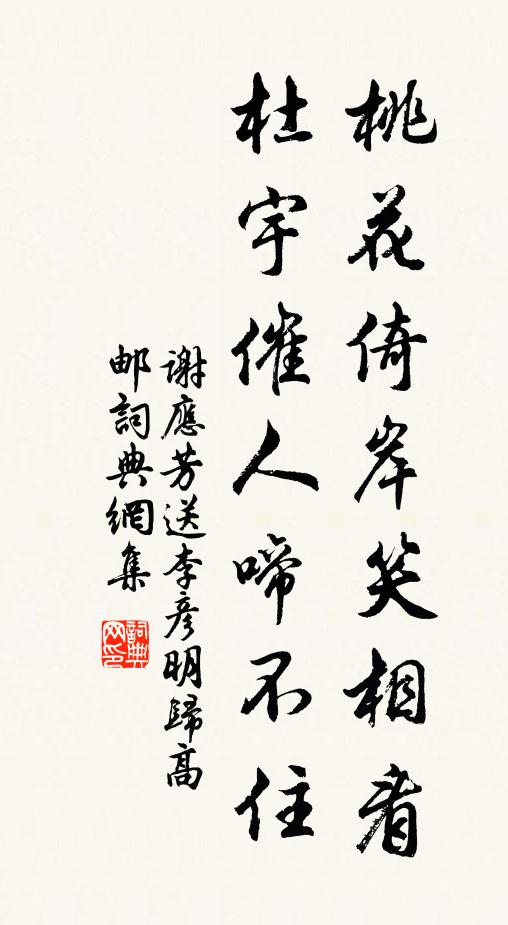 桃花倚岸笑相看
杜宇催人啼不住
謝應芳送李彦明歸高
邮詞典網集
詞典网印